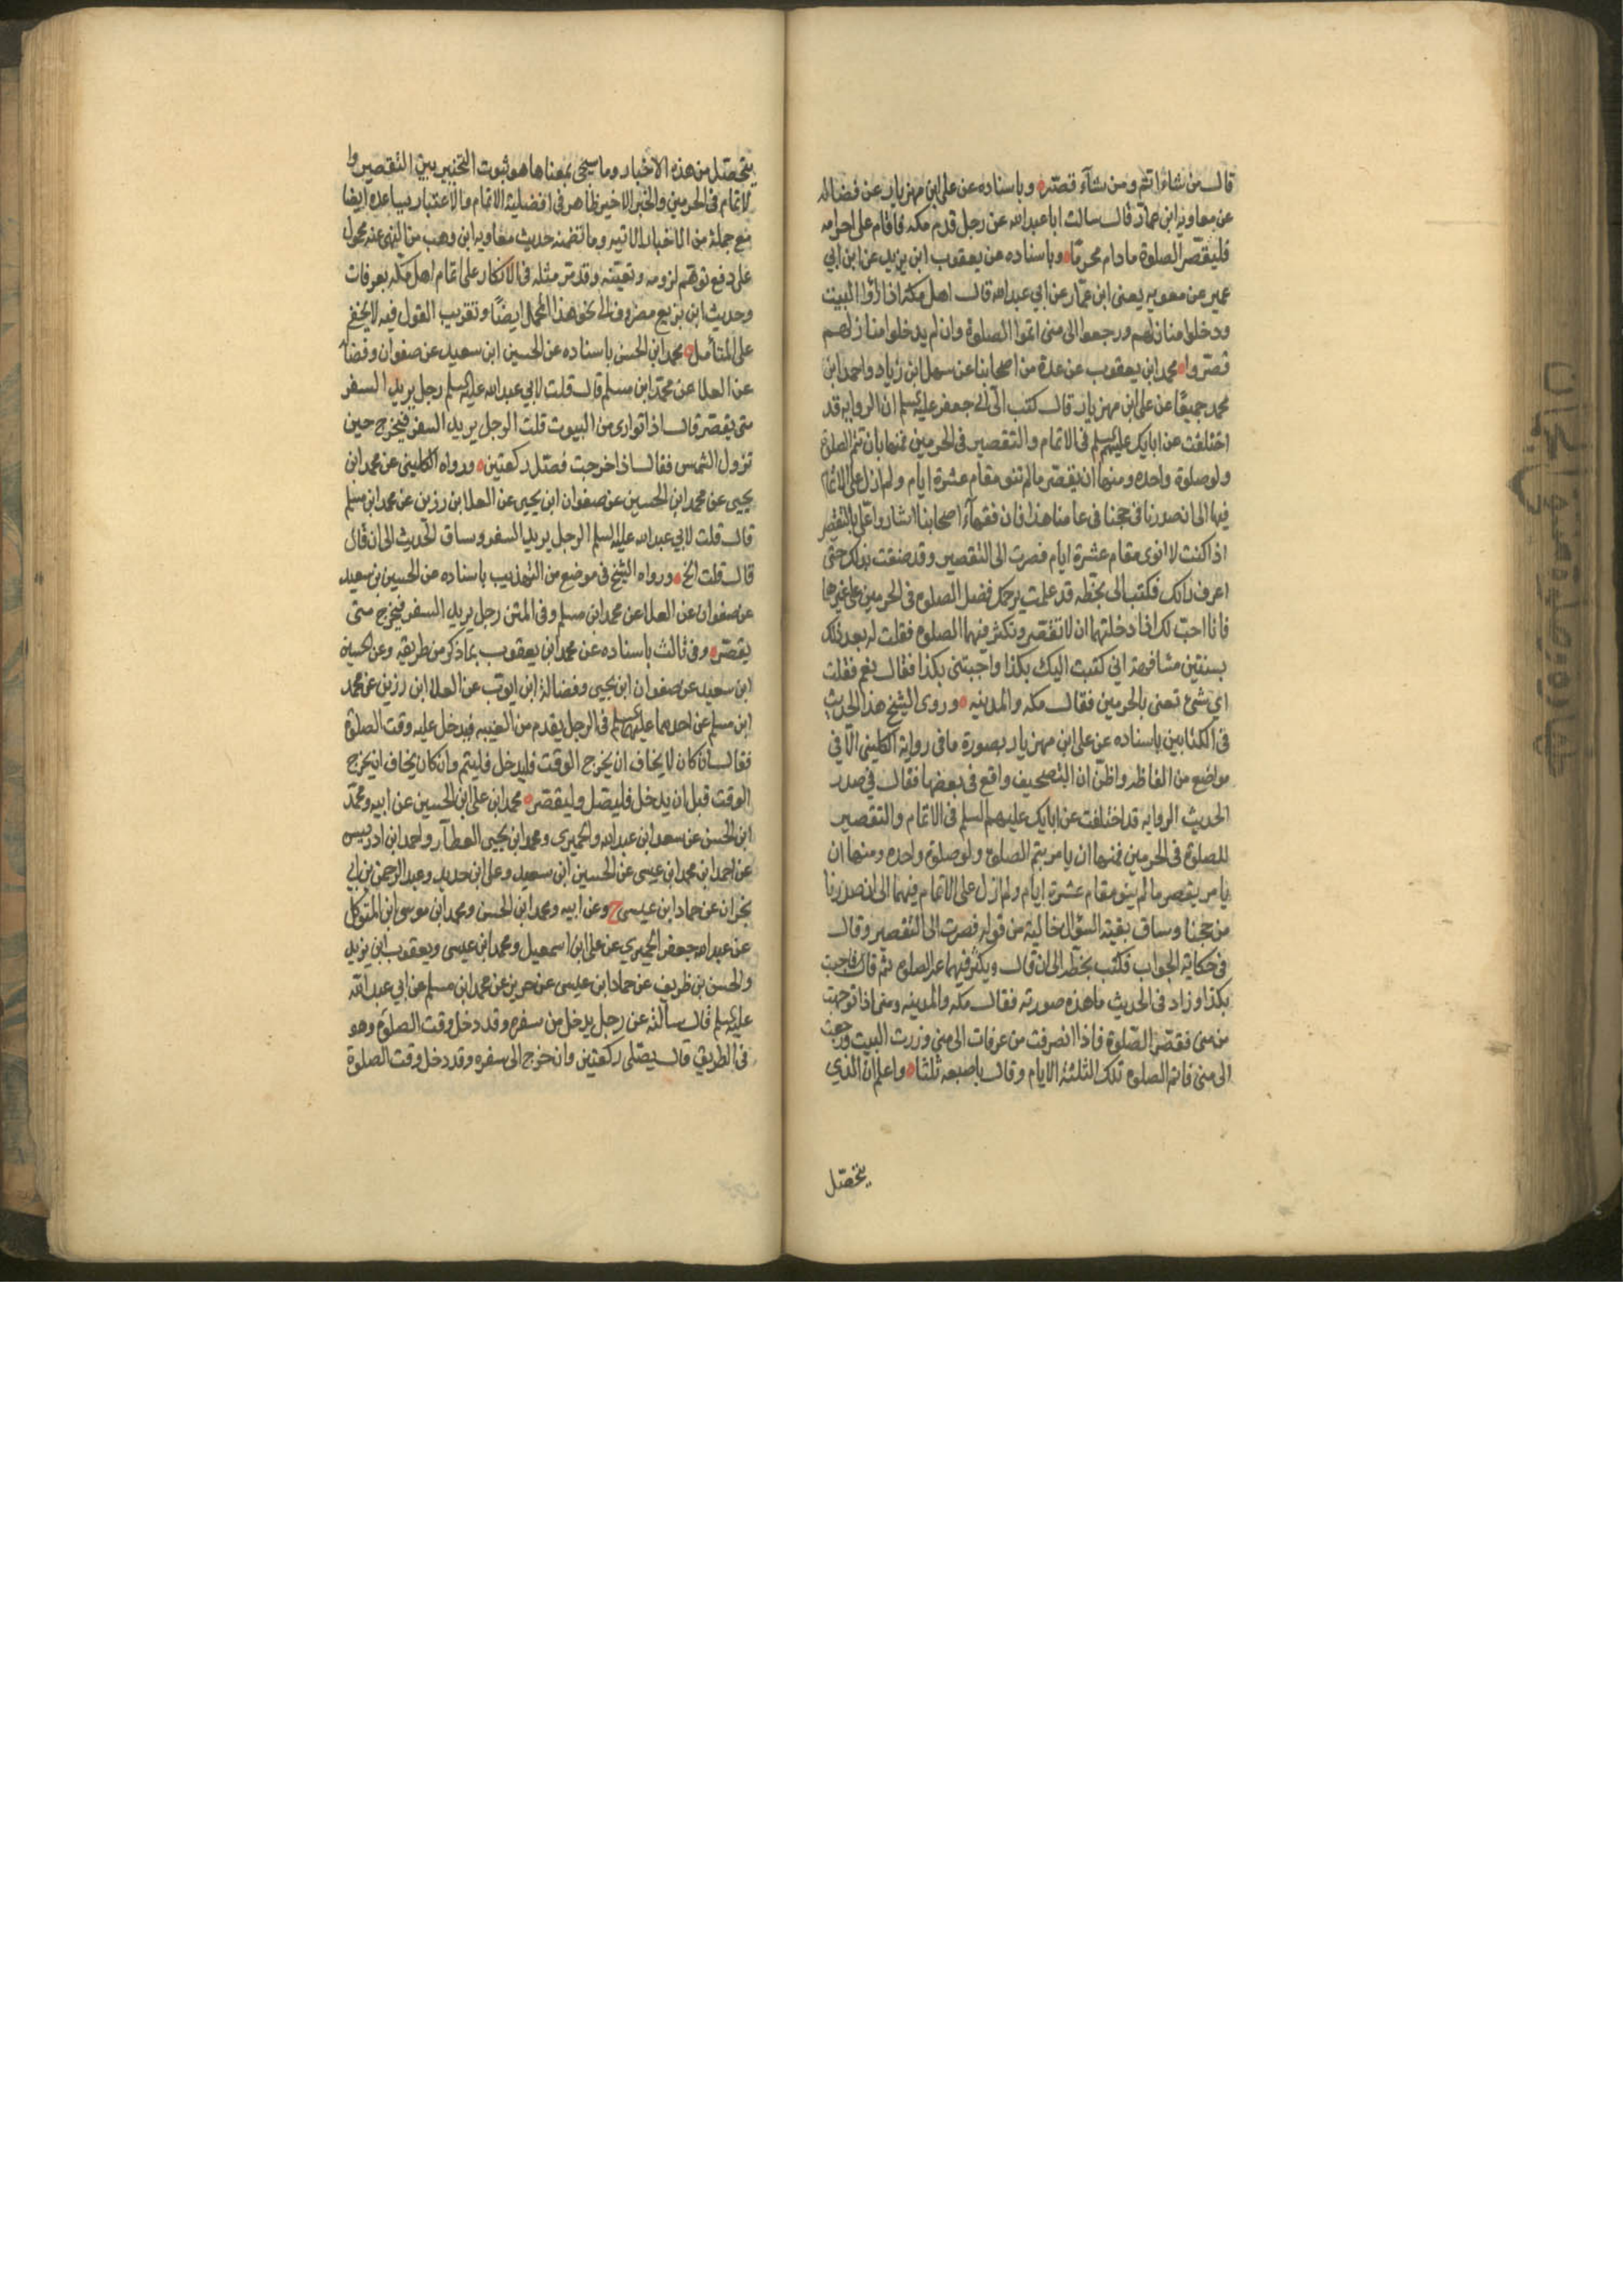 قال من شاء اتم ومن شاء قصر وباسناده عن علي ابن مهزيار عن فضاله
عن معاويه ابن عمار قال سالت ابا عبد الله عن رجل قدم مكه فاقام على احرامه
فليقصّر الصلوة مادام محرمًا وباسناده عن يعقوب ابن يزيد عن ابن ابي
عمير عن معويه يعنى ابن عمّار عن ابي عبد الله قال اهل مكه اذا زاروا البيت
ودخلوا منازلهم ورجعوا الى منى اتموا الصلوة وان لم يدخلوا منازلهم
قصّروا محمد ابن يعقوب عن عدة من اصحابنا عن سهل ابن زياد واحمد ابن
محمد جميعًا عن علي ابن مهزيار قال كتبت الى ابي جعفر عليه السلم ان الروايه قد
اختلفت عن ابايك عليهم السلم في الاتمام والتقصير في الحرمين فمنها بان تتم الصلوة
ولو صلوة واحده ومنها ان يقصر مالم تنو مقام عشرة ايام ولم ازل على الاتمام
فيها الى ان صدرنا في حجنا في عامنا هذا فان فقهاء اصحابنا اشاروا علي بالتقصير
اذا كنت لا انوى مقام عشرة ايام فصرت الى التقصير وقد ضقت بذلك حتى
اعرف رايك فكتب الى بخطه قد علمت يرحمك الله فضل الصلوه في الحرمين على غيرهما
فانا احبّ لك اذا دخلتهما ان لا تقصر وتكثر فيهما الصلوه فقلت له بعد ذلك
بسنتين مشافهة اني كتبت اليك بكذا واجبتني بكذا فقال نعم فقلت
اي شئ تعنى بالحرمين فقال مكه والمدينه وروى الشيخ هذا الحديث
في الكتابين باسناده عن علي ابن مهزيار بصورة ما في رواية الكليني الا في
مواضع من الفاظه واظن ان التصحيف واقع في بعضها فقال في صدر
الحديث الروايه قد اختلفت عن ابايك عليهم السلم في الاتمام والتقصير
للصلوة في الحرمين فمنها ان يامر بتم الصلوة ولو صلوة واحده ومنها ان
يامر بقصر مالم ينو مقام عشرة ايام ولم ازل على الاتمام فيهما الى ان صدرنا
من حجنا وساق بقية السؤال خالية من قوله فصرت الى التقصير وقال
في حكاية الجواب فكتب بخطه الى ان قال ويكثر فيهما من الصلوه ثم قال فاجبت
بكذا وزاد في الحديث ما هذه صورته فقال مكه والمدينه ومتى اذا توجهت
من منى فقصّر الصّلوة فاذا انصرفت من عرفات الى منى وزرت البيت ورجعت
الى منى فاتم الصلوه تلك الثلثة الايام وقال باصبعه ثلثا واعلم ان الذي
يتحصّل
يتحصّل من هذه الاخبار وما سيجئ بمعناها هو ثبوت التخيير بين التقصير وا
لاتمام في الحرمين والخبر الاخير ظاهر في افضلية الاتمام والاعتبار يساعده ايضا
مع جملة من الاخبار الاتيه وما تضمنه حديث معاويه ابن وهب من النهى عنه محمول
على دفع توهّم لزومه وتعيّنه وقد مر مثله في الانكار على اتمام اهل مكه بعرفات
وحديث ابن بزيع مصروف الى نحو هذا المحمل ايضًا وتقريب القول فيه لا يخفى
على المتأمل محمد ابن الحسن باسناده عن الحسين ابن سعيد عن صفوان وفضاله
عن العلا عن محمد ابن مسلم قال قلت لابي عبد الله عليه السلم رجل يريد السفر
متى يقصر قال اذا توارى من البيوت قلت الرجل يريد السفر فيخرج حين
تزول الشمس فقال اذا خرجت فصل ركعتين ورواه الكليني عن محمد ابن
يحيى عن محمد ابن الحسين عن صفوان ابن يحيى عن العلا ابن رزين عن محمد ابن مسلم
قال قلت لابي عبد الله عليه السلم الرجل يريد السفر وساق الحديث الى ان قال
قال قلت الخ ورواه الشيخ في موضع من التهذيب باسناده عن الحسين بن سعيد
عن صفوان عن العلا عن محمد ابن مسلم وفي المتن رجل يريد السفر فيخرج متى
يقصّر وفي ثالث باسناده عن محمد ابن يعقوب بما ذكر من طريقه وعن الحسين
ابن سعيد عن صفوان ابن يحيى وفضالة ابن ايوب عن العلا ابن رزين عن محمد
ابن مسلم عن احدهما عليهما السلم في الرجل يقدم من الغيبه فيدخل عليه وقت الصلوة
فقال ان كان لا يخاف ان يخرج الوقت فليدخل فليتم وان كان يخاف ان يخرج
الوقت قبل ان يدخل فليصل وليقصّر محمد ابن علي ابن الحسين عن ابيه ومحمد
ابن الحسن عن سعد ابن عبد الله والحميري ومحمد ابن يحيى العطار واحمد ابن ادريس
عن احمد ابن محمد ابن عيسى عن الحسين ابن سعيد وعلي ابن حديد وعبد الرحمن بن ابي
نجران عن حماد ابن عيسى ح وعن ابيه ومحمد ابن الحسن ومحمد ابن موسى ابن المتوكل
عن عبد الله جعفر الحميري عن علي ابن اسمعيل ومحمد ابن عيسى ويعقوب ابن يزيد
والحسن بن ظريف عن حماد ابن عيسى عن حريز عن محمد ابن مسلم عن ابي عبد الله
عليه السلم قال سالته عن رجل يدخل من سفره وقد دخل وقت الصلوة وهو
في الطريق قال يصلى ركعتين وان خرج الى سفره وقد دخل وقت الصلوة